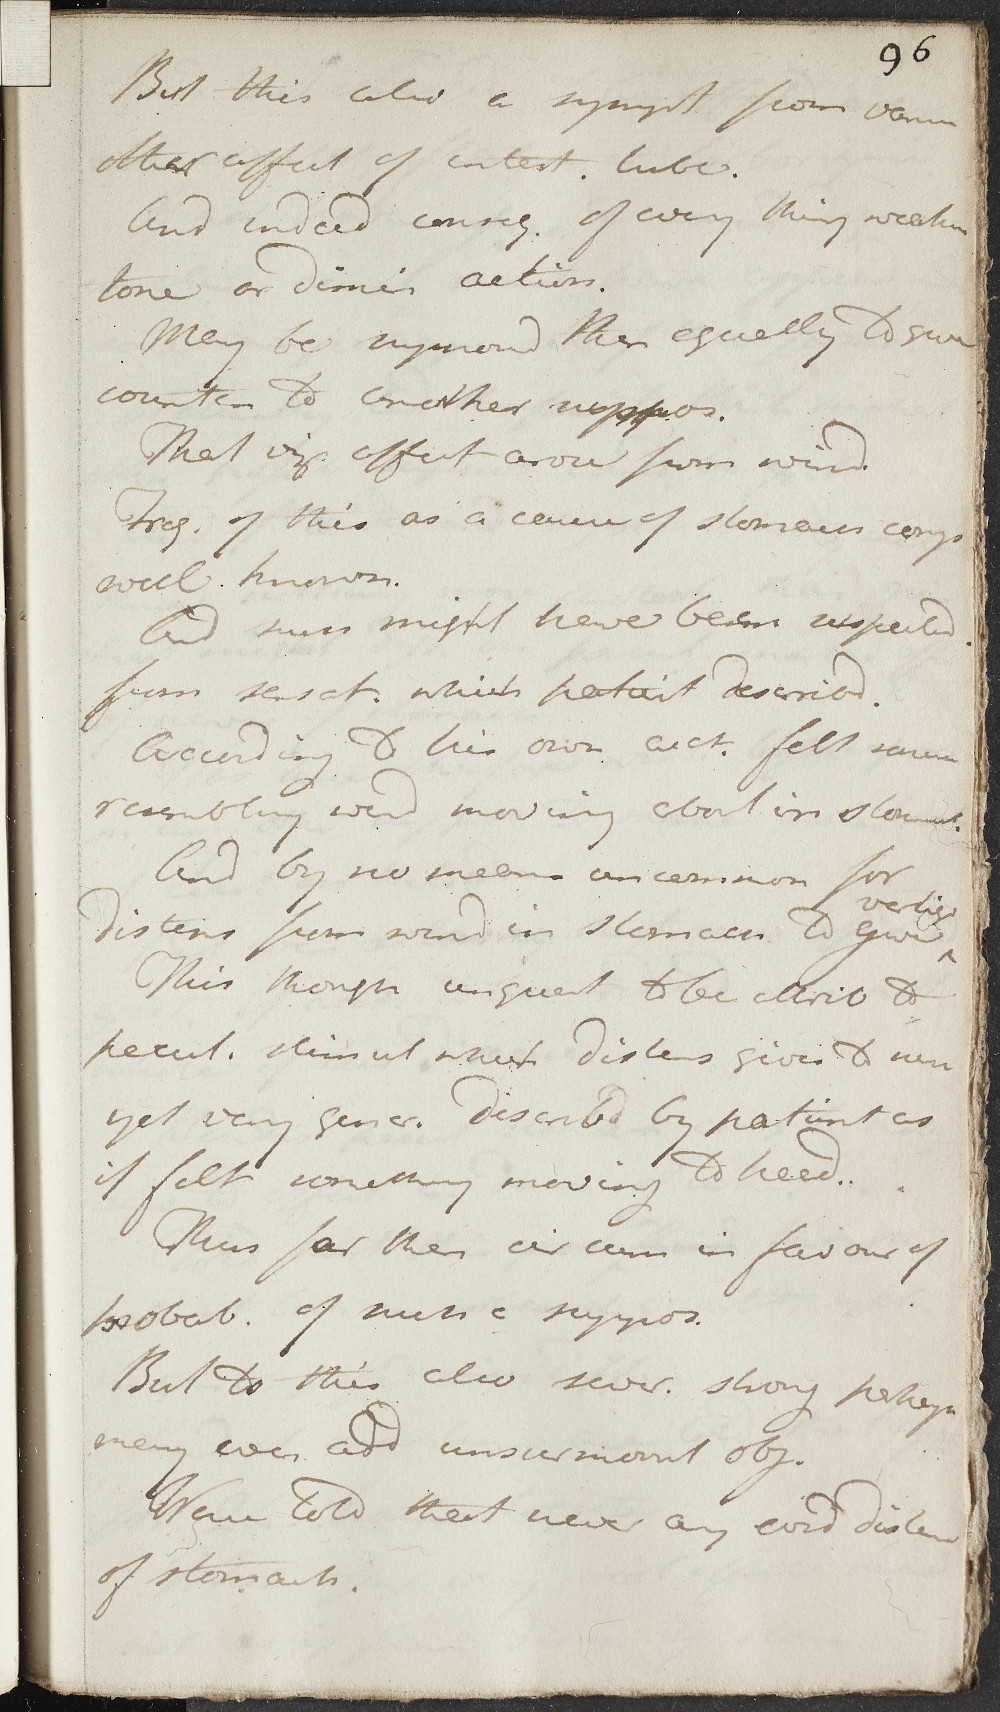 96
But this also a sympt from variou
other affect of intest. tube.
And indeed conseq. of every thing weaken
tone or dimin action.
May be supposed then equally to give
counten to another suppos.
That viz affect arose from wind.
Freq. of this as a cause of stomach comp
well known.
And such might have been suspected.
from sensat. which patient described.
According to his own acct. felt somen
resembling wind moving about in stomach.
And by no means uncommon for
distens from wind in stomach to give vertigo
This though unquest to be attrib to
pecul. stimul which distens gives to nerv
yet very gener. described by patient as
if felt something moving to head.
Thus far then circum in favour of
probab. of such a suppos.
But to this also sever. strong perhaps
may even add unsurmount obj.
Were told that never any evid disten
of stomach.